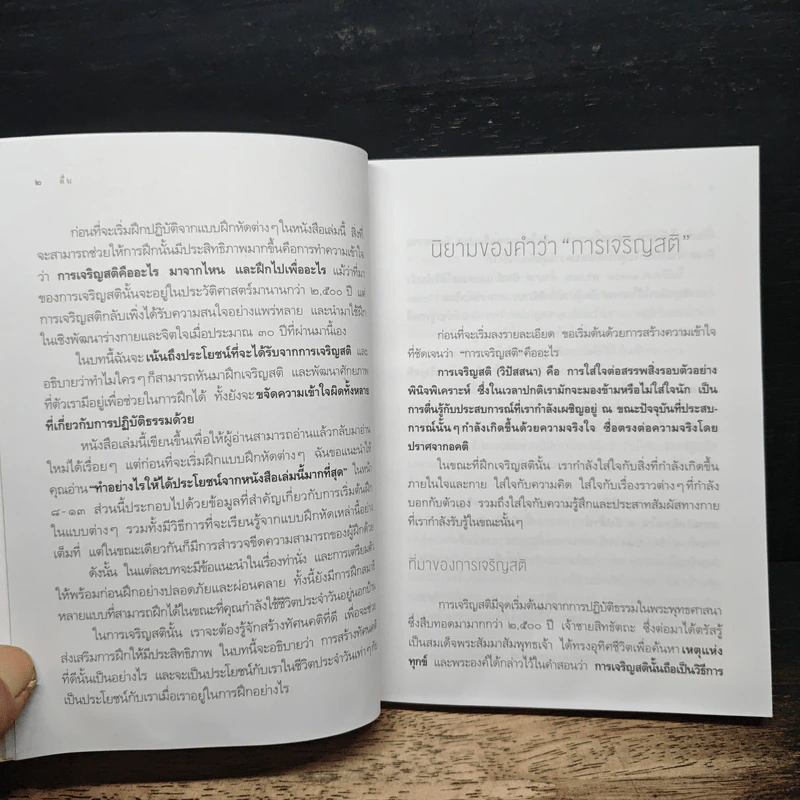 ๒ ตื่น
ก่อนที่จะเริ่มฝึกปฏิบัติจากแบบฝึกหัดต่างๆ ในหนังสือเล่มนี้ สิ่งที่
จะสามารถช่วยให้การฝึกนั้นมีประสิทธิภาพมากขึ้นคือการทำความเข้าใจ
ว่า การเจริญสติคืออะไร มาจากไหน และฝึกไปเพื่ออะไร แม้ว่าที่มา
ของการเจริญสตินั้นจะอยู่ในประวัติศาสตร์มานานกว่า ๒,๕๐๐ ปี แต่
การเจริญสติกลับเพิ่งได้รับความสนใจอย่างแพร่หลาย และนำมาใช้ฝึก
ในเชิงพัฒนาร่างกายและจิตใจเมื่อประมาณ ๓๐ ปีที่ผ่านมานี้เอง
ในบทนี้ฉันจะ เน้นถึงประโยชน์ที่จะได้รับจากการเจริญสติ และ
อธิบายว่าทำไมใครๆ ก็สามารถหันมาฝึกเจริญสติ และพัฒนาศักยภาพ
ที่ตัวเรามีอยู่เพื่อช่วยในการฝึกได้ ทั้งยังจะ ขจัดความเข้าใจผิดทั้งหลาย
ที่เกี่ยวกับการปฏิบัติธรรมด้วย
หนังสือเล่มนี้เขียนขึ้นเพื่อให้ผู้อ่านสามารถอ่านแล้วกลับมาอ่าน
ใหม่ได้เรื่อยๆ แต่ก่อนที่จะเริ่มฝึกแบบฝึกหัดต่างๆ ฉันขอแนะนำให้
คุณอ่าน “ทำอย่างไรให้ได้ประโยชน์จากหนังสือเล่มนี้มากที่สุด” ในหน้า
๘-๑๓ ส่วนนี้ประกอบไปด้วยข้อมูลที่สำคัญเกี่ยวกับการเริ่มต้นฝึก
ในแบบต่างๆ รวมทั้งมีวิธีการที่จะเรียนรู้จากแบบฝึกหัดเหล่านี้อย่าง
เต็มที่ แต่ในขณะเดียวกันก็มีการสำรวจขีดความสามารถของผู้ฝึกด้วย
ดังนั้น ในแต่ละบทจะมีข้อแนะนำในเรื่องท่านั่ง และการเตรียมตัว
ให้พร้อมก่อนฝึกอย่างปลอดภัยและผ่อนคลาย ทั้งนี้ยังมีการฝึกสมาธิ
หลายแบบที่สามารถฝึกได้ในขณะที่คุณกำลังใช้ชีวิตประจำวันอยู่นอกบ้าน
ในการเจริญสตินั้น เราจะต้องรู้จักสร้างทัศนคติที่ดี เพื่อจะช่วย
ส่งเสริมการฝึกให้มีประสิทธิภาพ ในบทนี้จะอธิบายว่า การสร้างทัศนคติ
ที่ดีนั้นเป็นอย่างไร และจะเป็นประโยชน์กับเราในชีวิตประจำวันเท่าๆ กับ
เป็นประโยชน์กับเราเมื่อเราอยู่ในการฝึกอย่างไร
นิยามของคำว่า “การเจริญสติ”
ก่อนที่จะเริ่มลงรายละเอียด ขอเริ่มต้นด้วยการสร้างความเข้าใจ
ที่ชัดเจนว่า “การเจริญสติ”คืออะไร
การเจริญสติ (วิปัสสนา) คือ การใส่ใจต่อสรรพสิ่งรอบตัวอย่าง
พินิจพิเคราะห์ ซึ่งในเวลาปกติเรามักจะมองข้ามหรือไม่ใส่ใจนัก เป็น
การตื่นรู้กับประสบการณ์ที่เรากำลังเผชิญอยู่ ณ ขณะปัจจุบันที่ประสบ-
การณ์นั้นๆ กำลังเกิดขึ้นด้วยความจริงใจ ซื่อตรงต่อความจริงโดย
ปราศจากอคติ
ในขณะที่ฝึกเจริญสตินั้น เรากำลังใส่ใจกับสิ่งที่กำลังเกิดขึ้น
ภายในใจและกาย ใส่ใจกับความคิด ใส่ใจกับเรื่องราวต่างๆ ที่กำลัง
บอกกับตัวเอง รวมถึงใส่ใจกับความรู้สึกและประสาทสัมผัสทางกาย
ที่เรากำลังรับรู้ในขณะนั้นๆ
ที่มาของการเจริญสติ
การเจริญสติมีจุดเริ่มต้นมาจากการปฏิบัติธรรมในพระพุทธศาสนา
ซึ่งสืบทอดมามากกว่า ๒,๕๐๐ ปี เจ้าชายสิทธัตถะ ซึ่งต่อมาได้ตรัสรู้
เป็นสมเด็จพระสัมมาสัมพุทธเจ้า ได้ทรงอุทิศชีวิตเพื่อค้นหา เหตุแห่ง
ทุกข์ และพระองค์ได้กล่าวไว้ในคำสอนว่า การเจริญสตินั้นถือเป็นวิธีการ